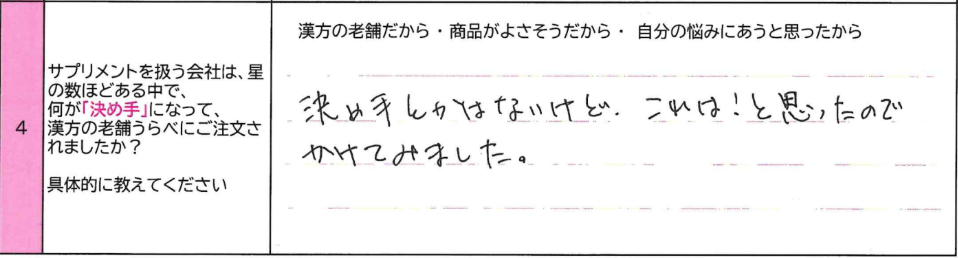 4
サプリメントを扱う会社は、星
の数ほどある中で、
何が「決め手」になって、
漢方の老舗うらべにご注文さ
れましたか？
具体的に教えてください
漢方の老舗だから・商品がよさそうだから・ 自分の悩みにあうと思ったから
決め手とかはないけど、これは！と思ったので
かけてみました。